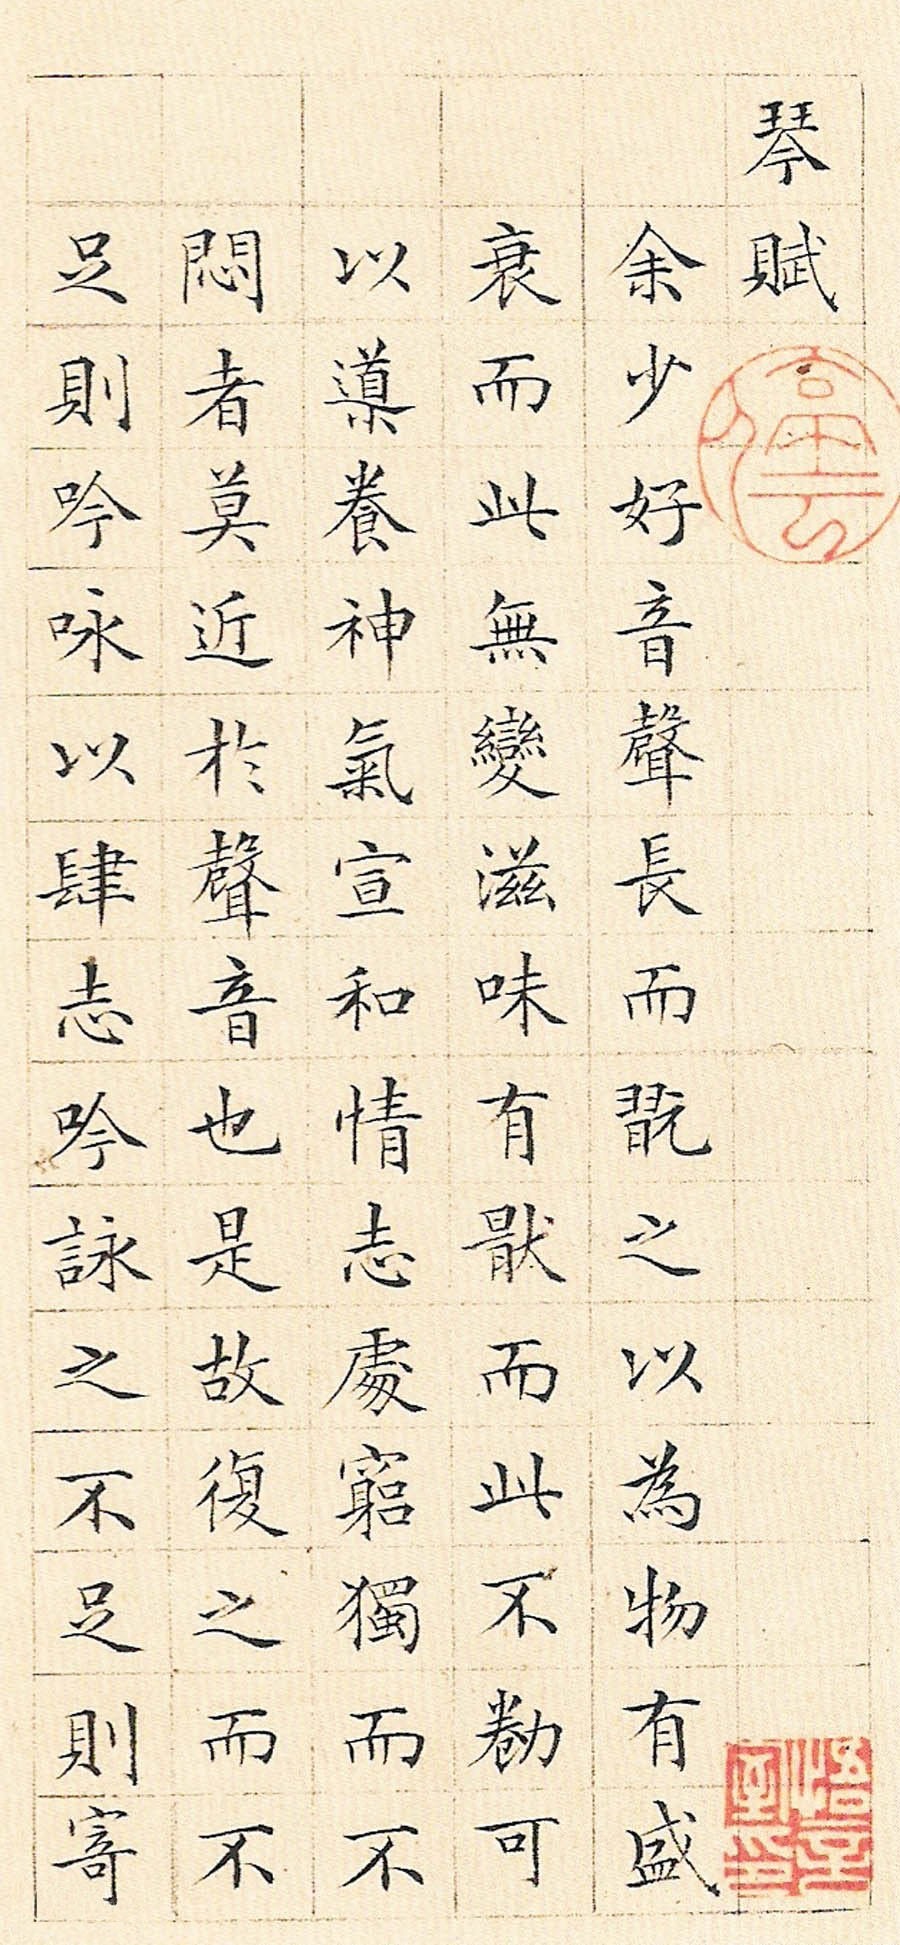 琴賦
停云
悟言室印
余少好音聲長而翫之以為物有盛
衰而此無變滋味有猒而此不勌可
以導養神氣宣和情志處窮獨而不
悶者莫近於聲音也是故復之而不
足則吟咏以肆志吟詠之不足則寄